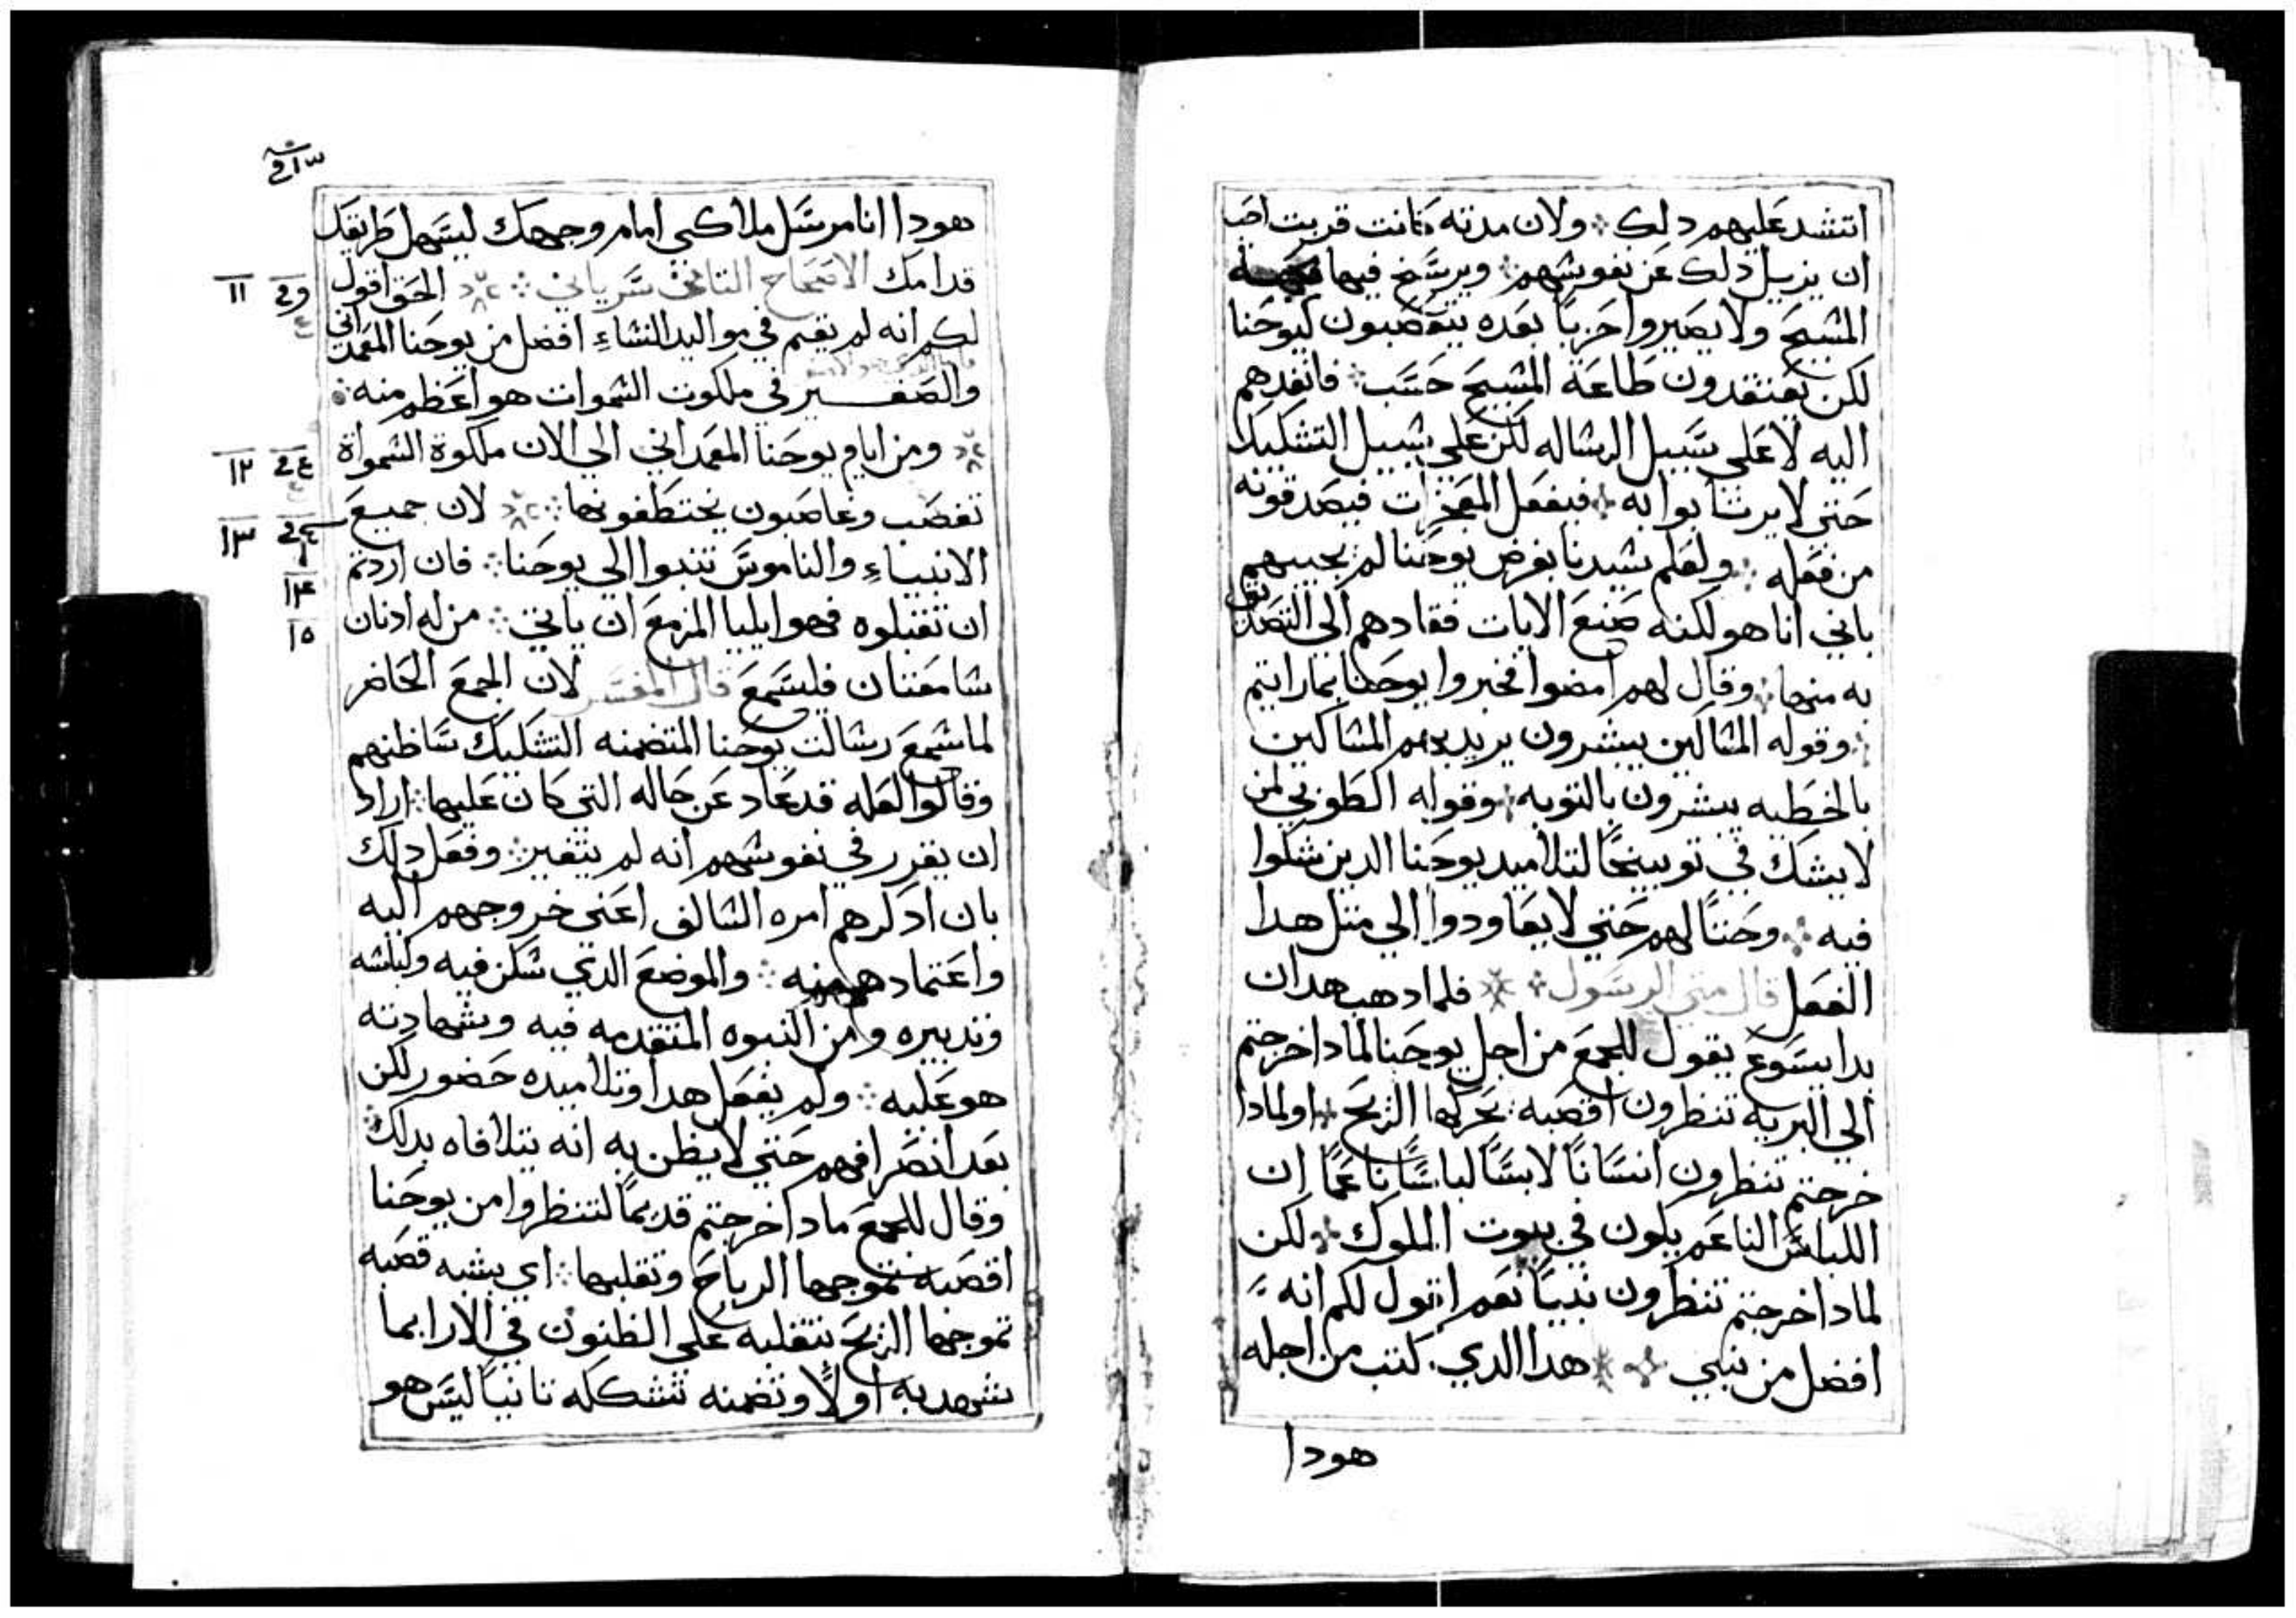 اتشد عليهم دلك ولان مدته كانت قربت احب
ان يزيل دلك عن نفوسهم ويرسخ فيها محبة
المسيح ولا يصيروا حزباً بعده يتعصبون ليوحنا
لكن يعتقدون طاعة المسيح حسب فانفدهم
اليه لا على سبيل الرساله لكن على سبيل التشكيك
حتى لا يرتابوا به فيفعل المعجزات فيصدقونه
من فعله ولعلم سيدنا بغرض يوحنا لم يجيبهم
باني انا هو لكنه صنع الايات فقادهم الي التصديق
به منها وقال لهم امضوا فخبروا يوحنا بما رايتم
وقوله المساكين يبشرون يريد بهم المساكين
بالخطيه يبشرون بالتوبه وقوله الطوبي لمن
لا يشك في توبيخاً لتلاميد يوحنا الدين شكوا
فيه وحتاً لهم حتي لا يعاودوا الي متل هدا
الفعل قال متي الرسول فلما دهب هدان
بدا يسوع يقول للجمع من اجل يوحنا لمادا خرجتم
الي البريه تنظرون اقصبه تحركها الريح او لمادا
خرجتم تنظرون انساناً لابساً لباساً ناعماً ان
اللباس الناعم يكون في بيوت الملوك لكن
لمادا خرجتم تنظرون نبياً نعم اقول لكم انه
افضل من نبي هدا الدي كتب من اجله
هودا
هودا انا مرسل ملاكي امام وجهك ليسهل طريقك
قدامك الاصحاح التاني سرياني الحق اقول
لكم انه لم يقم في مواليد النساء افضل من يوحنا المعمداني
والصغير في ملكوت السموات هو اعظم منه
ومن ايام يوحنا المعمداني الي الان ملكوة السمواة
تغصب وغاصبون يختطفونها لان جميع
الانبياء والناموس تنبوا الي يوحنا فان اردتم
ان تقبلوه فهو ايليا المزمع ان ياتي من له ادنان
سامعتان فليسمع قال المفسر لان الجمع الحاضر
لما سمع رسالت يوحنا المتضمنه التشكيك ساظنهم
وقالوا لعله قد عاد عن حاله التي كان عليها اراد
ان يقرر في نفوسهم انه لم يتغير وفعل دلك
بان ادكرهم امره السالف اعني خروجهم اليه
واعتمادهم منه والموضع الدي سكن فيه ولباسه
وتدبيره ومن النبوه المتقدمه فيه وشهادته
هو عليه ولم يفعل هدا وتلاميده حضور لكن
بعد انصرافهم حتي لا يظن به انه يتلافاه بدلك
وقال للجمع مادا خرجتم قديماً لتنظروا من يوحنا
اقصبه تموجها الرياح وتقلبها اي يشبه قصبه
تموجها الريح بتقلبه علي الظنون في الارا بما
شهد به اولاً وتضمنه تشككه تانياً ليس هو
١١
١٢
١٣
١٤
١٥